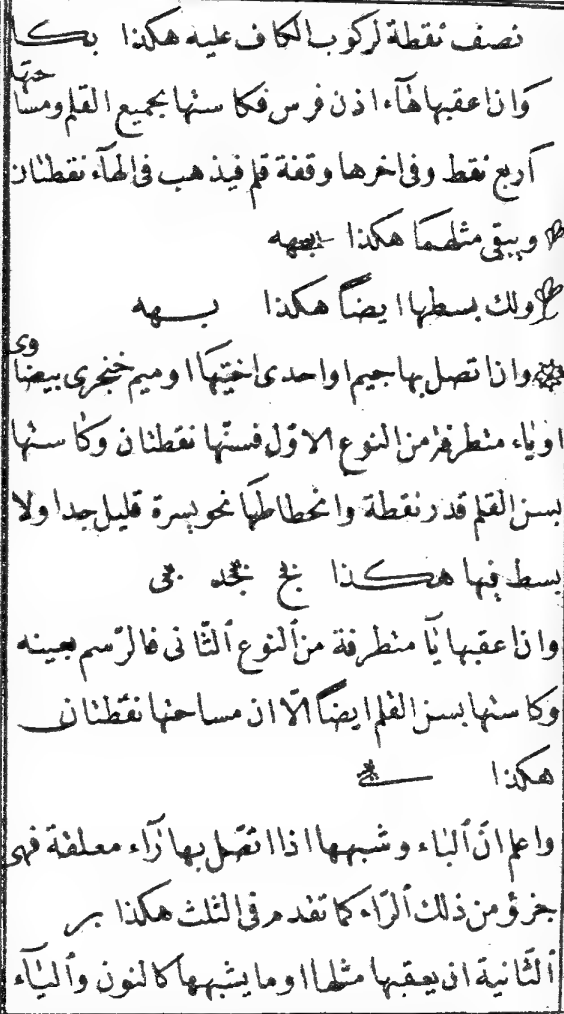 نصف نقطة لركوب الكاف عليه هكذا بكا
وان اعقبها هاء اذن فرس فكا ستها بجميع القلم ومسا حتها
اربع نقط وفى اخرها وقفة قلم فيذهب فى الهاء نقطتان
ويبقى مثلهما هكذا بهه
ولك بسطها ايضاً هكذا بــهه
وان اتصل بها جيم او احدى اختيها او ميم خنجرى بيضا وى
او ياء متطرفة من النوع الاوّل فسنّها نقطتان وكا ستها
بسن القلم قدر نقطة وانحطاطها نحو يسرة قليل جدا ولا
بسط فيها هكــذا بج بجد بى
وان اعقبها ياء متطرفة من النوع الثّانى فالرّسم بعينه
وكا ستها بسن القلم ايضاً الّا ان مساحتها نقطتان
هكذا
واعلم انّ الباء وشبهها اذا اتصل بها زاء معلقة فهى
جزؤ من ذلك الرّاء كما تقدم فى الثلث هكذا بر
الثّانية ان يعقبها مثلها او ما يشبهها كالنون والياء